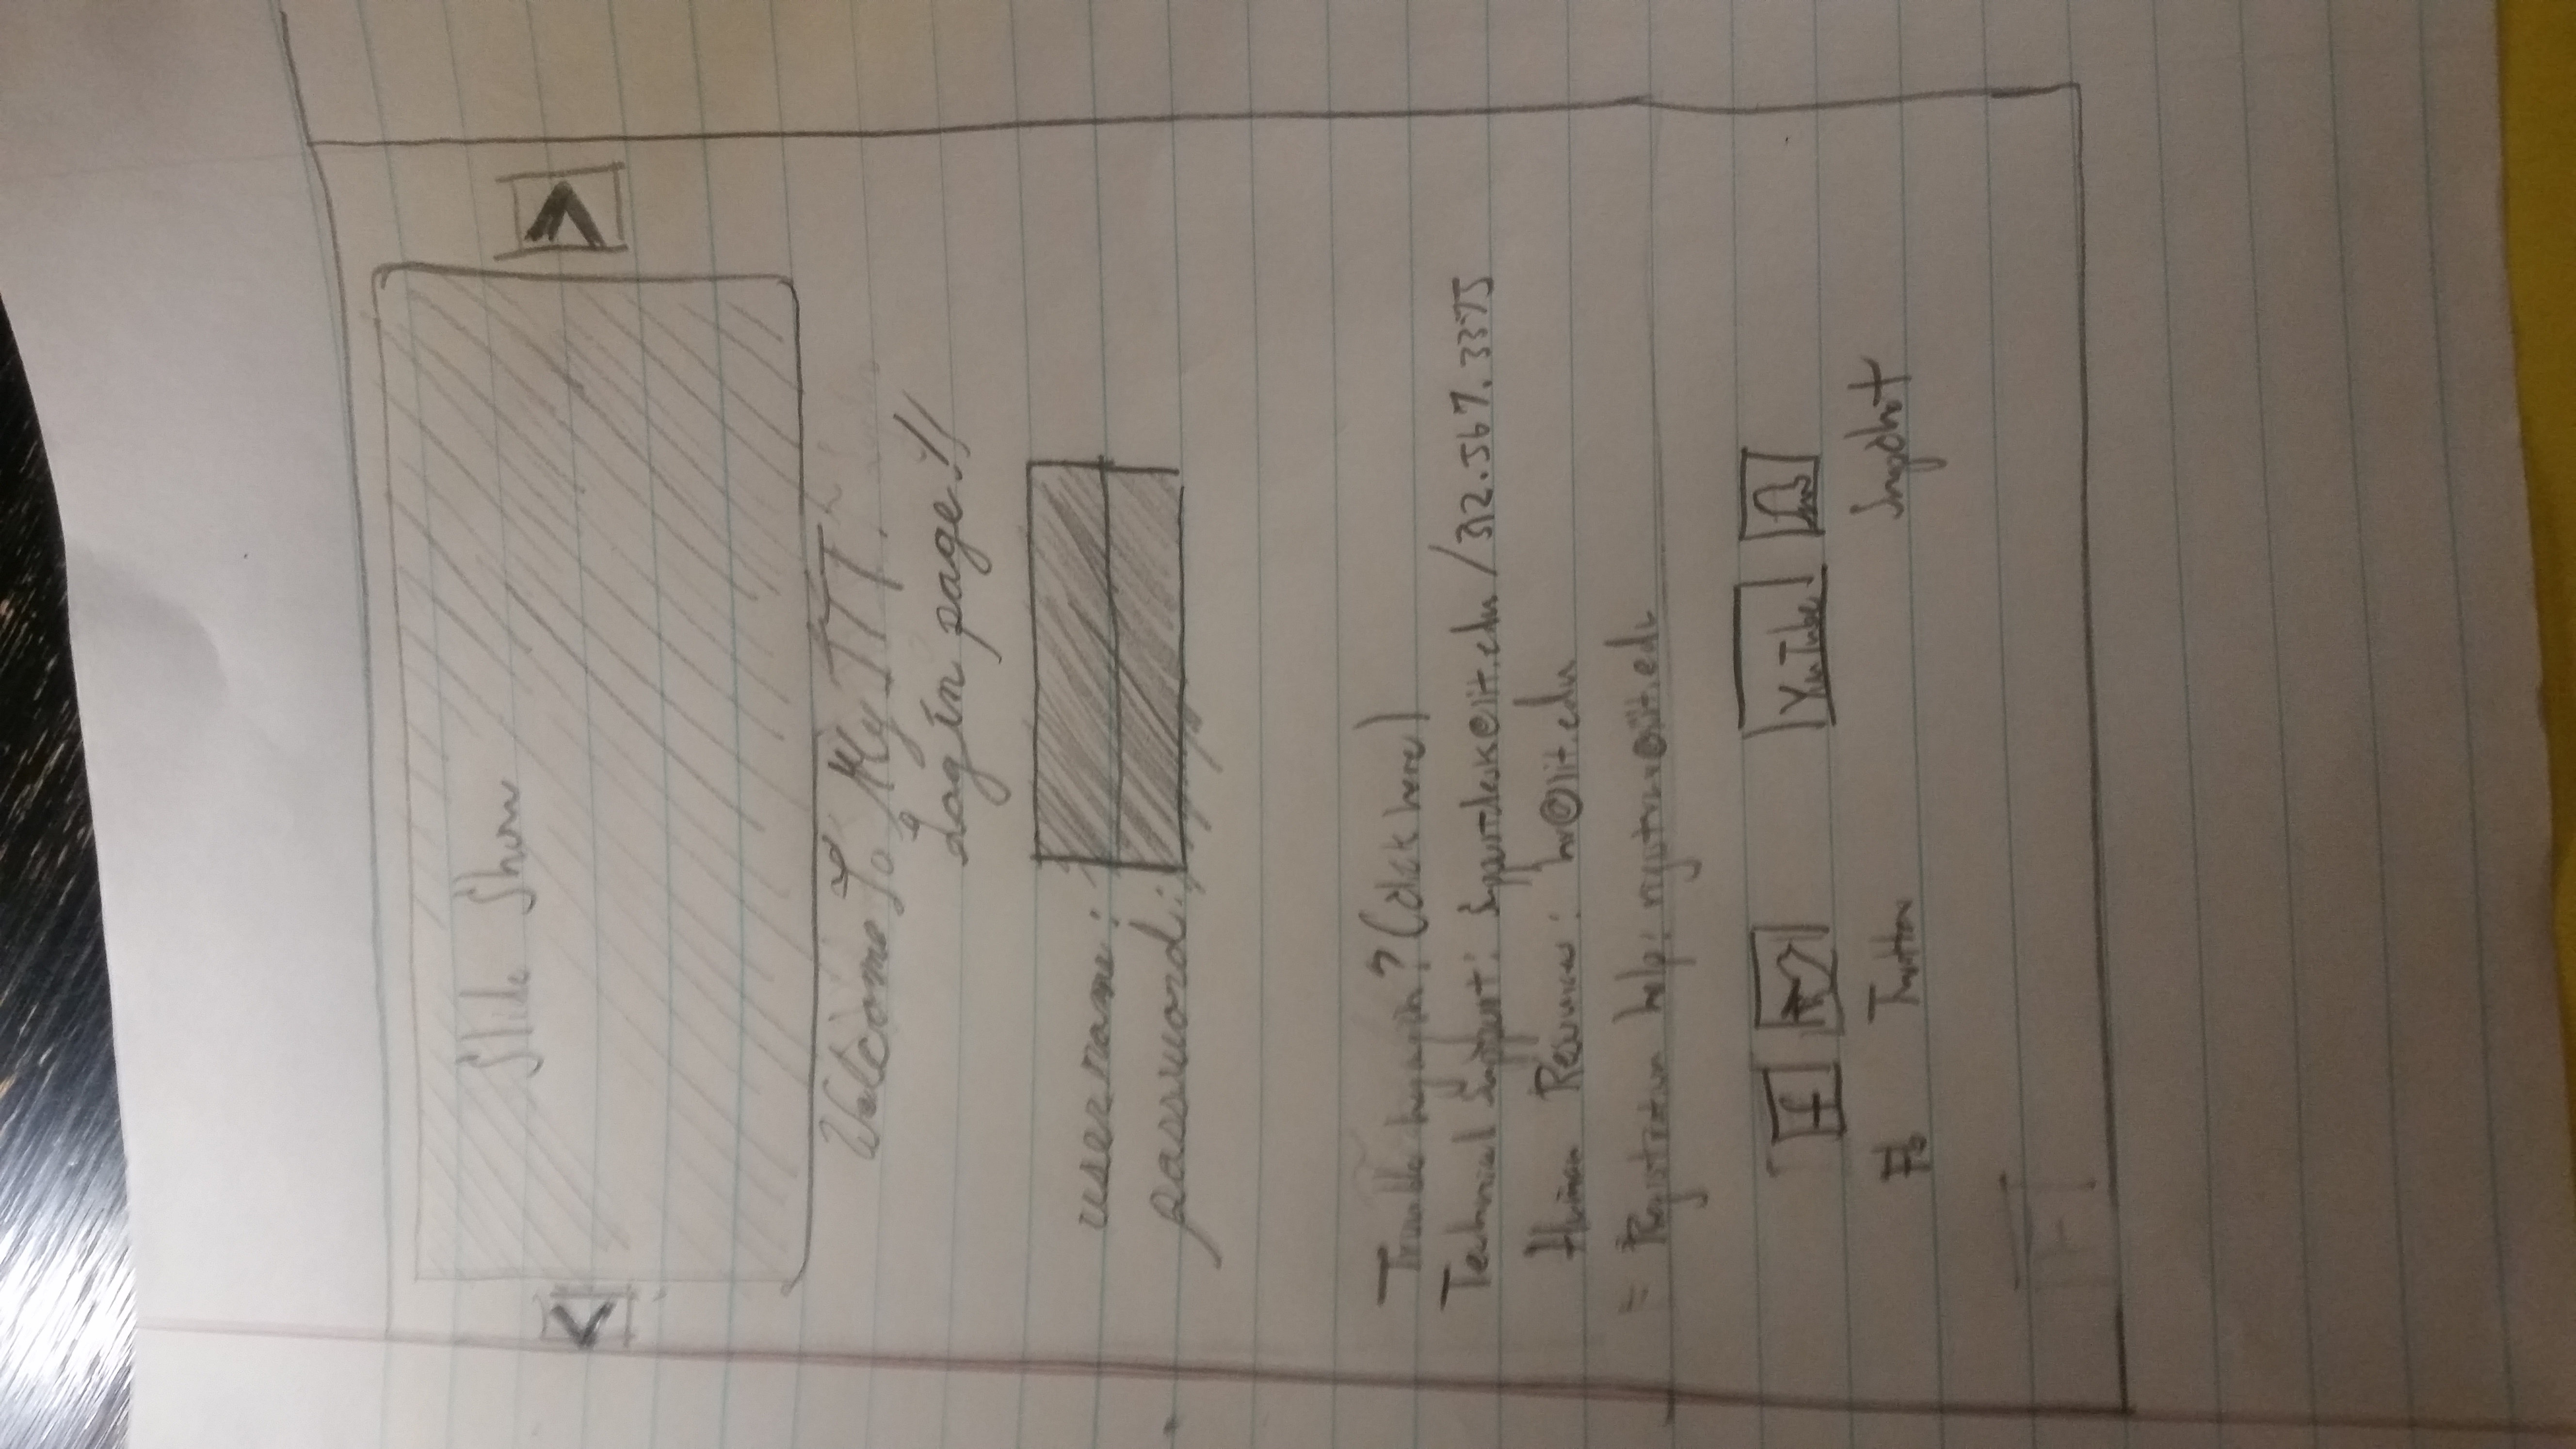 Slide Show
<
>
Welcome To My IIT.
Login page!!
username:
password:
Trouble logging in? (click here)
Technical Support: Supportdesk@iit.edu / 312.567.3375
Human Resources: hr@iit.edu
Registration help: registrar@iit.edu
f
YouTube
Fb Twitter Snapchat